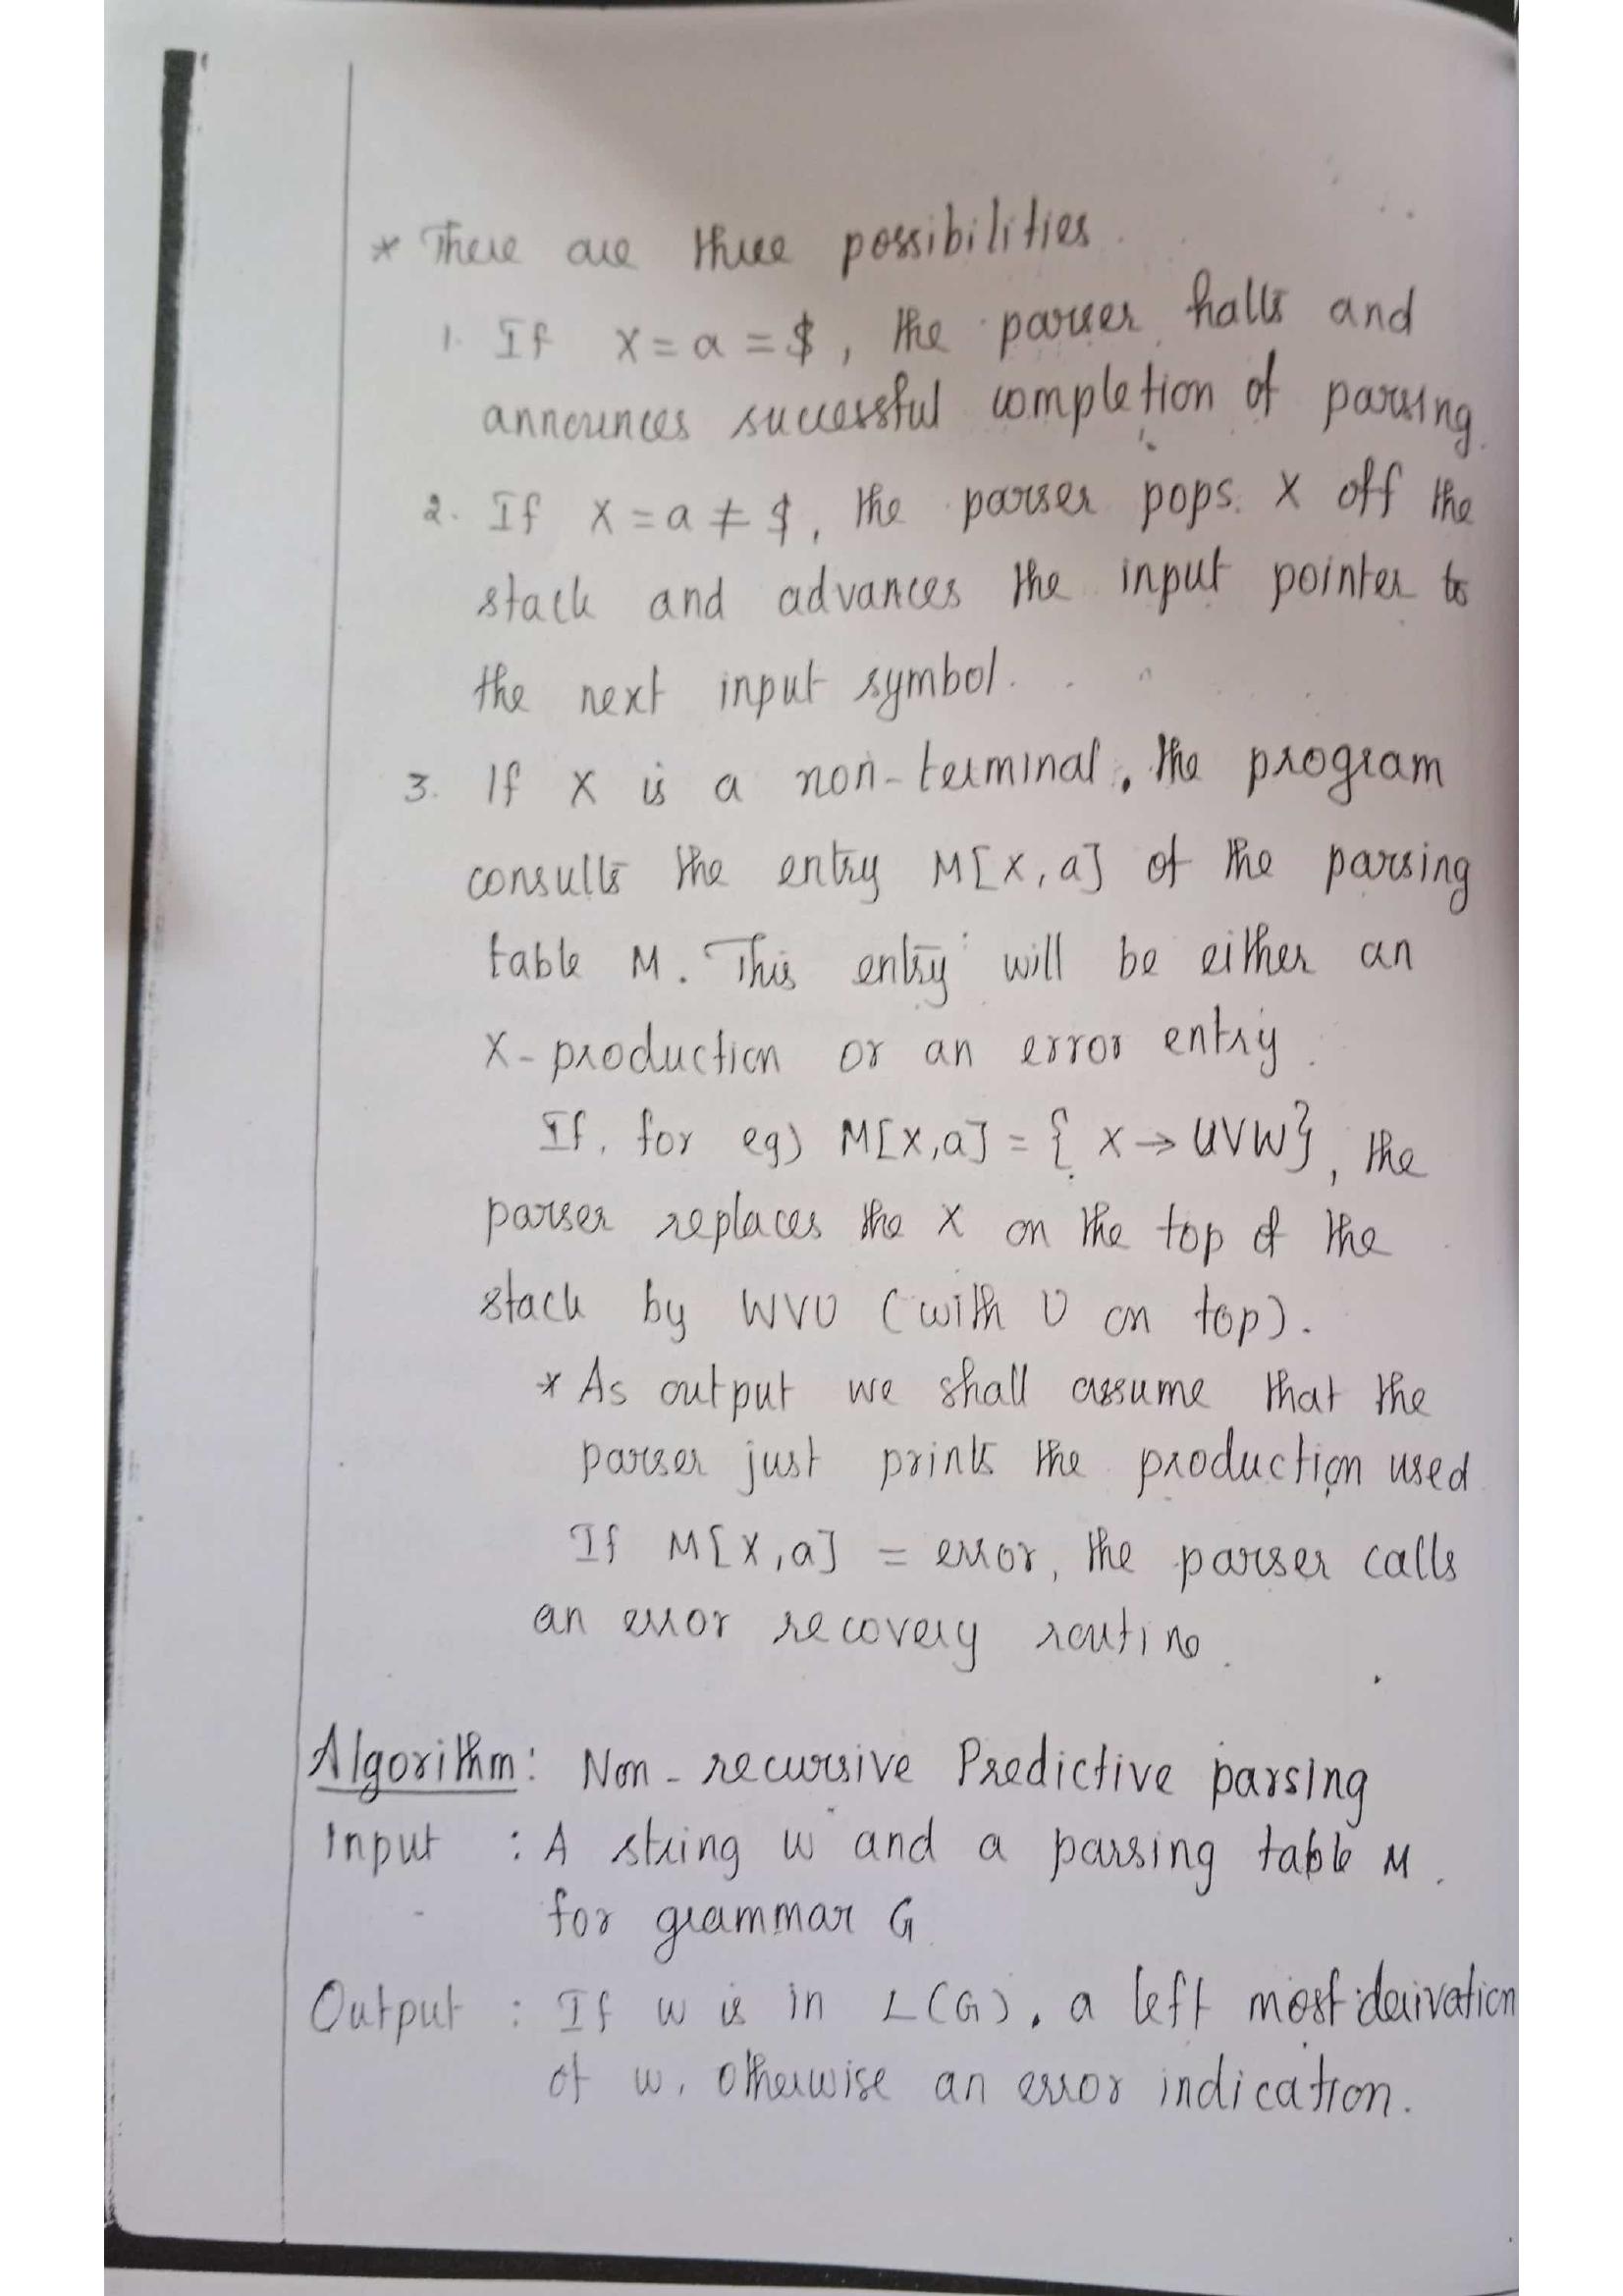 * There are three possibilities.
1. If X = a = $, the parser halts and
announces successful completion of parsing.
2. If X = a ≠ $, the parser pops X off the
stack and advances the input pointer to
the next input symbol.
3. If X is a non-terminal, the program
consults the entry M[X, a] of the parsing
table M. This entry will be either an
X-production or an error entry.
If, for eg) M[X,a] = { X → UVW}, the
parser replaces the X on the top of the
stack by WVU (with U on top).
* As output we shall assume that the
parser just prints the production used
If M[X,a] = error, the parser calls
an error recovery routine.
Algorithm: Non-recursive Predictive parsing
Input : A string w and a parsing table M.
for grammar G
Output : If w is in L(G), a left most derivation
of w, otherwise an error indication.